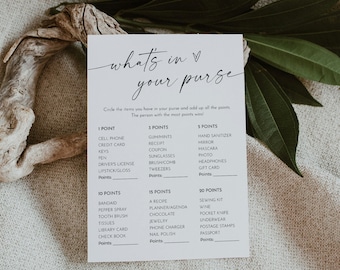 what's in ♡
your purse
Circle the items you have in your purse and add up all the points.
The person with the most points wins!
1 POINT
CELL PHONE
CREDIT CARD
KEYS
PEN
DRIVER'S LICENSE
LIPSTICK/GLOSS
Points:
3 POINTS
GUM/MINTS
RECEIPT
COUPON
SUNGLASSES
BRUSH/COMB
TWEEZERS
Points:
5 POINTS
HAND SANITIZER
MIRROR
MASCARA
PHOTOS
HEADPHONES
GIFT CARD
Points:
10 POINTS
BANDAID
PEPPER SPRAY
TOOTH BRUSH
TISSUES
LIBRARY CARD
CHECK BOOK
Points:
15 POINTS
A RECIPE
PLANNER/AGENDA
CHOCOLATE
JEWELRY
PHONE CHARGER
NAIL POLISH
Points:
20 POINTS
SEWING KIT
WINE
POCKET KNIFE
UNDERWEAR
POSTAGE STAMPS
PASSPORT
Points: